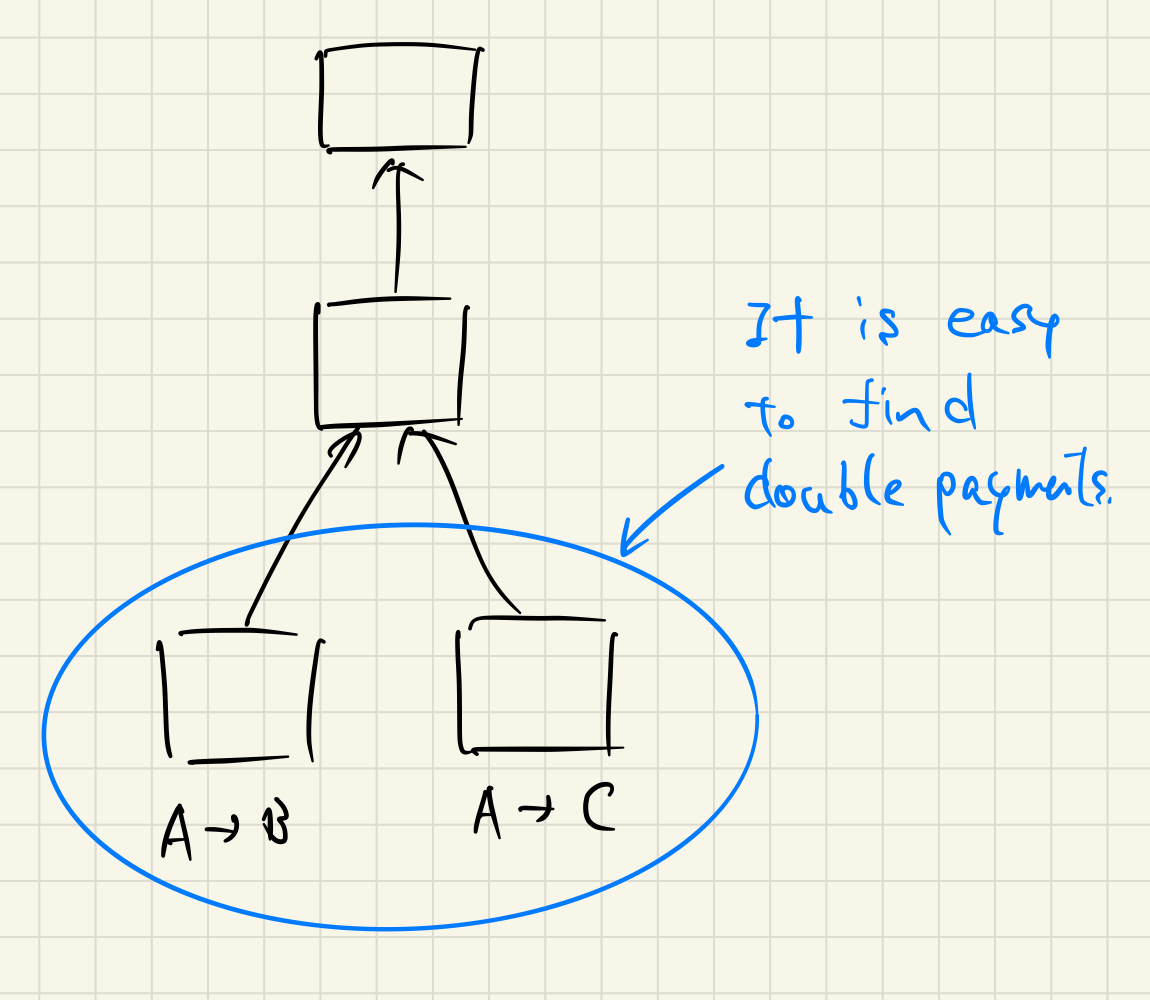 It is easy
to find
double payments.
A → B
A → C